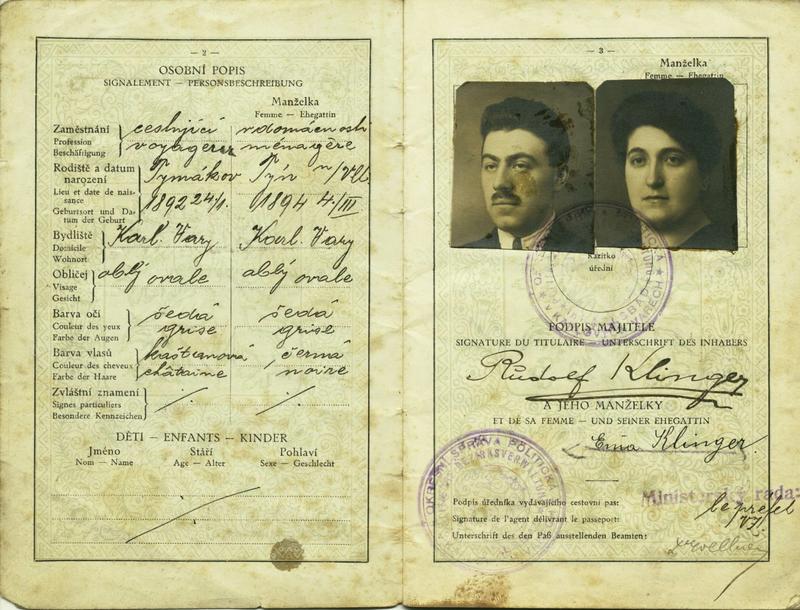 — 2 —
OSOBNÍ POPIS
SIGNALEMENT — PERSONSBESCHREIBUNG
Manželka
Femme — Ehegattin
Zaměstnání cestující v domácnosti
Profession voyageur ménagère
Beschäftigung
Rodiště a datum narození Tymákov Týn n/Vlt.
Lieu et date de naissance 1892 24/1. 1894 4/III
Geburtsort und Datum der Geburt
Bydliště Karl. Vary Karl. Vary
Domicile
Wohnort
Obličej oblý ovale oblý ovale
Visage
Gesicht
Barva očí šedá šedá
Couleur des yeux grise grise
Farbe der Augen
Barva vlasů kaštanová černá
Couleur des cheveux châtaine noire
Farbe der Haare
Zvláštní znamení
Signes particuliers
Besondere Kennzeichen
DĚTI – ENFANTS – KINDER
Jméno Stáří Pohlaví
Nom — Name Age — Alter Sexe — Geschlecht
— 3 —
Manželka
Femme — Ehegattin
Razítko
úřední
PODPIS MAJITELE
SIGNATURE DU TITULAIRE — UNTERSCHRIFT DES INHABERS
Rudolf Klinger
A JEHO MANŽELKY
ET DE SA FEMME — UND SEINER EHEGATTIN
Klinger
OKRESNÍ SPRÁVA POLITICKÁ
Podpis úředníka vydávajícího cestovní pas:
Ministerský rada:
Signature de l'agent délivrant le passeport:
Unterschrift des den Paß ausstellenden Beamten: